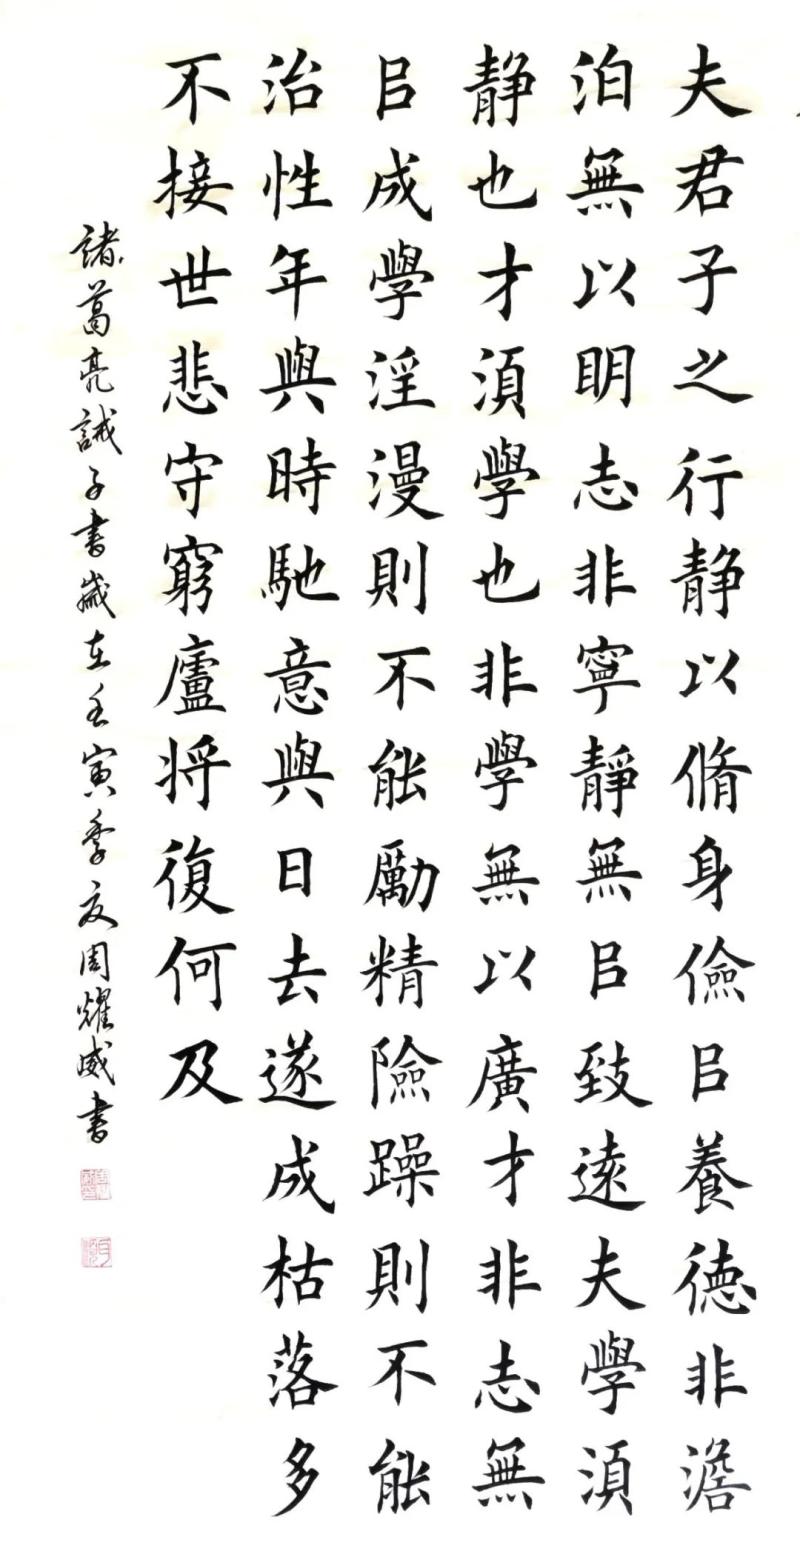 夫君子之行静以脩身儉㠯養徳非澹
泊無以眀志非寧靜無㠯致遠夫學湏
静也才湏學也非學無以廣才非志無
㠯成學淫漫則不能勵精險躁則不能
治性年與時馳意與日去遂成枯落多
不接世悲守窮廬将復何及
諸葛亮誡子書歲在壬寅季夏周耀威書